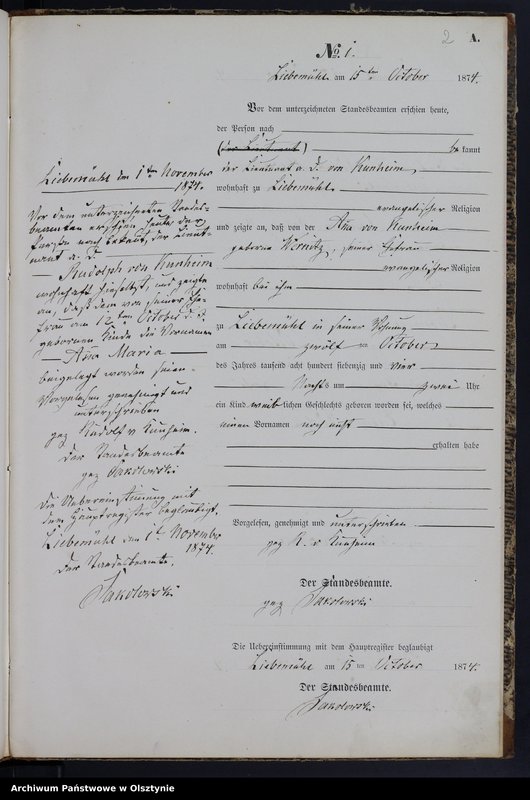 2
A.
No. 1.
Liebemühl am 15ten October 1874.
Vor dem unterzeichneten Standesbeamten erschien heute,
der Person nach
(der Lieutnant) bekannt
der Lieutnant a. d. von Kunheim,
wohnhaft zu Liebemühl
evangelischer Religion
und zeigte an, daß von der Ana von Kunheim
geborne seiner Ehefrau
evangelischer Religion
wohnhaft bei ihm
zu Liebemühl in seiner Wohnung
am zwölf ten October
des Jahres tausend acht hundert siebenzig und vier
Nachts um zwei Uhr
ein Kind weiblichen Geschlechts geboren worden sei, welches
einen Vornamen noch nicht
erhalten habe
Vorgelesen, genehmigt und unterschrieben
gez R. v Kunheim
Der Standesbeamte.
gez Sakolowski
Die Uebereinstimmung mit dem Hauptregister beglaubigt
Liebemühl am 15 ten October 1874.
Der Standesbeamte.
Sakolowski
Liebemühl den 1ten November
1874.
Vor dem unterzeichneten Standes-
beamten erschien heute der
Person nach bekannt, der Lieut-
nant a. d.
Rudolph von Kunheim
wohnhaft hieselbst, und zeigte
an, daß dem von seiner Ehe-
frau am 12ten October d. J.
geborenen Kinde die Vornamen
Ana Maria
beigelegt worden seien.
Vorgelesen genehmigt und
unterschrieben
gez Rudolf v Kunheim.
Der Standesbeamte
gez Sakolowski
Die Uebereinstimmung mit
dem Hauptregister beglaubigt.
Liebemühl den 1t November
1874.
Der Standesbeamte.
Sakolowski
Archiwum Państwowe w Olsztynie